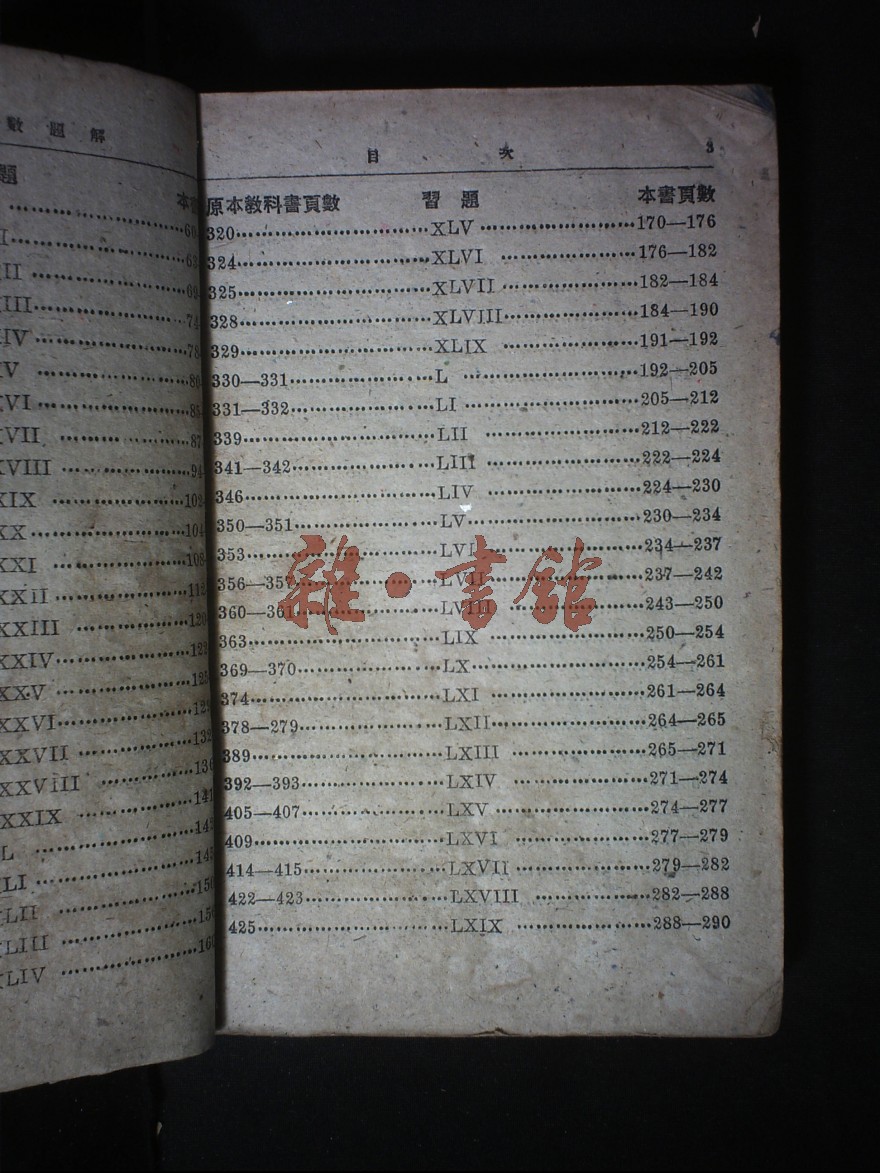 數 題 解
題
本書
I
II
III
IV
V
VI
VII
XVIII
XIX
XX
XXI
XXII
XXIII
XXIV
XXV
XXVI
XXVII
XXVIII
XXIX
L
LI
LII
LIII
LIV
目 次 3
原本教科書頁數 習 題 本書頁數
320 XLV 170—176
324 XLVI 176—182
325 XLVII 182—184
328 XLVIII 184—190
329 XLIX 191—192
330—331 L 192—205
331—332 LI 205—212
339 LII 212—222
341—342 LIII 222—224
346 LIV 224—230
350—351 LV 230—234
353 LVI 234—237
356—357 LVII 237—242
360—361 LVIII 243—250
363 LIX 250—254
369—370 LX 254—261
374 LXI 261—264
378—279 LXII 264—265
389 LXIII 265—271
392—393 LXIV 271—274
405—407 LXV 274—277
409 LXVI 277—279
414—415 LXVII 279—282
422—423 LXVIII 282—288
425 LXIX 288—290
雜·書館